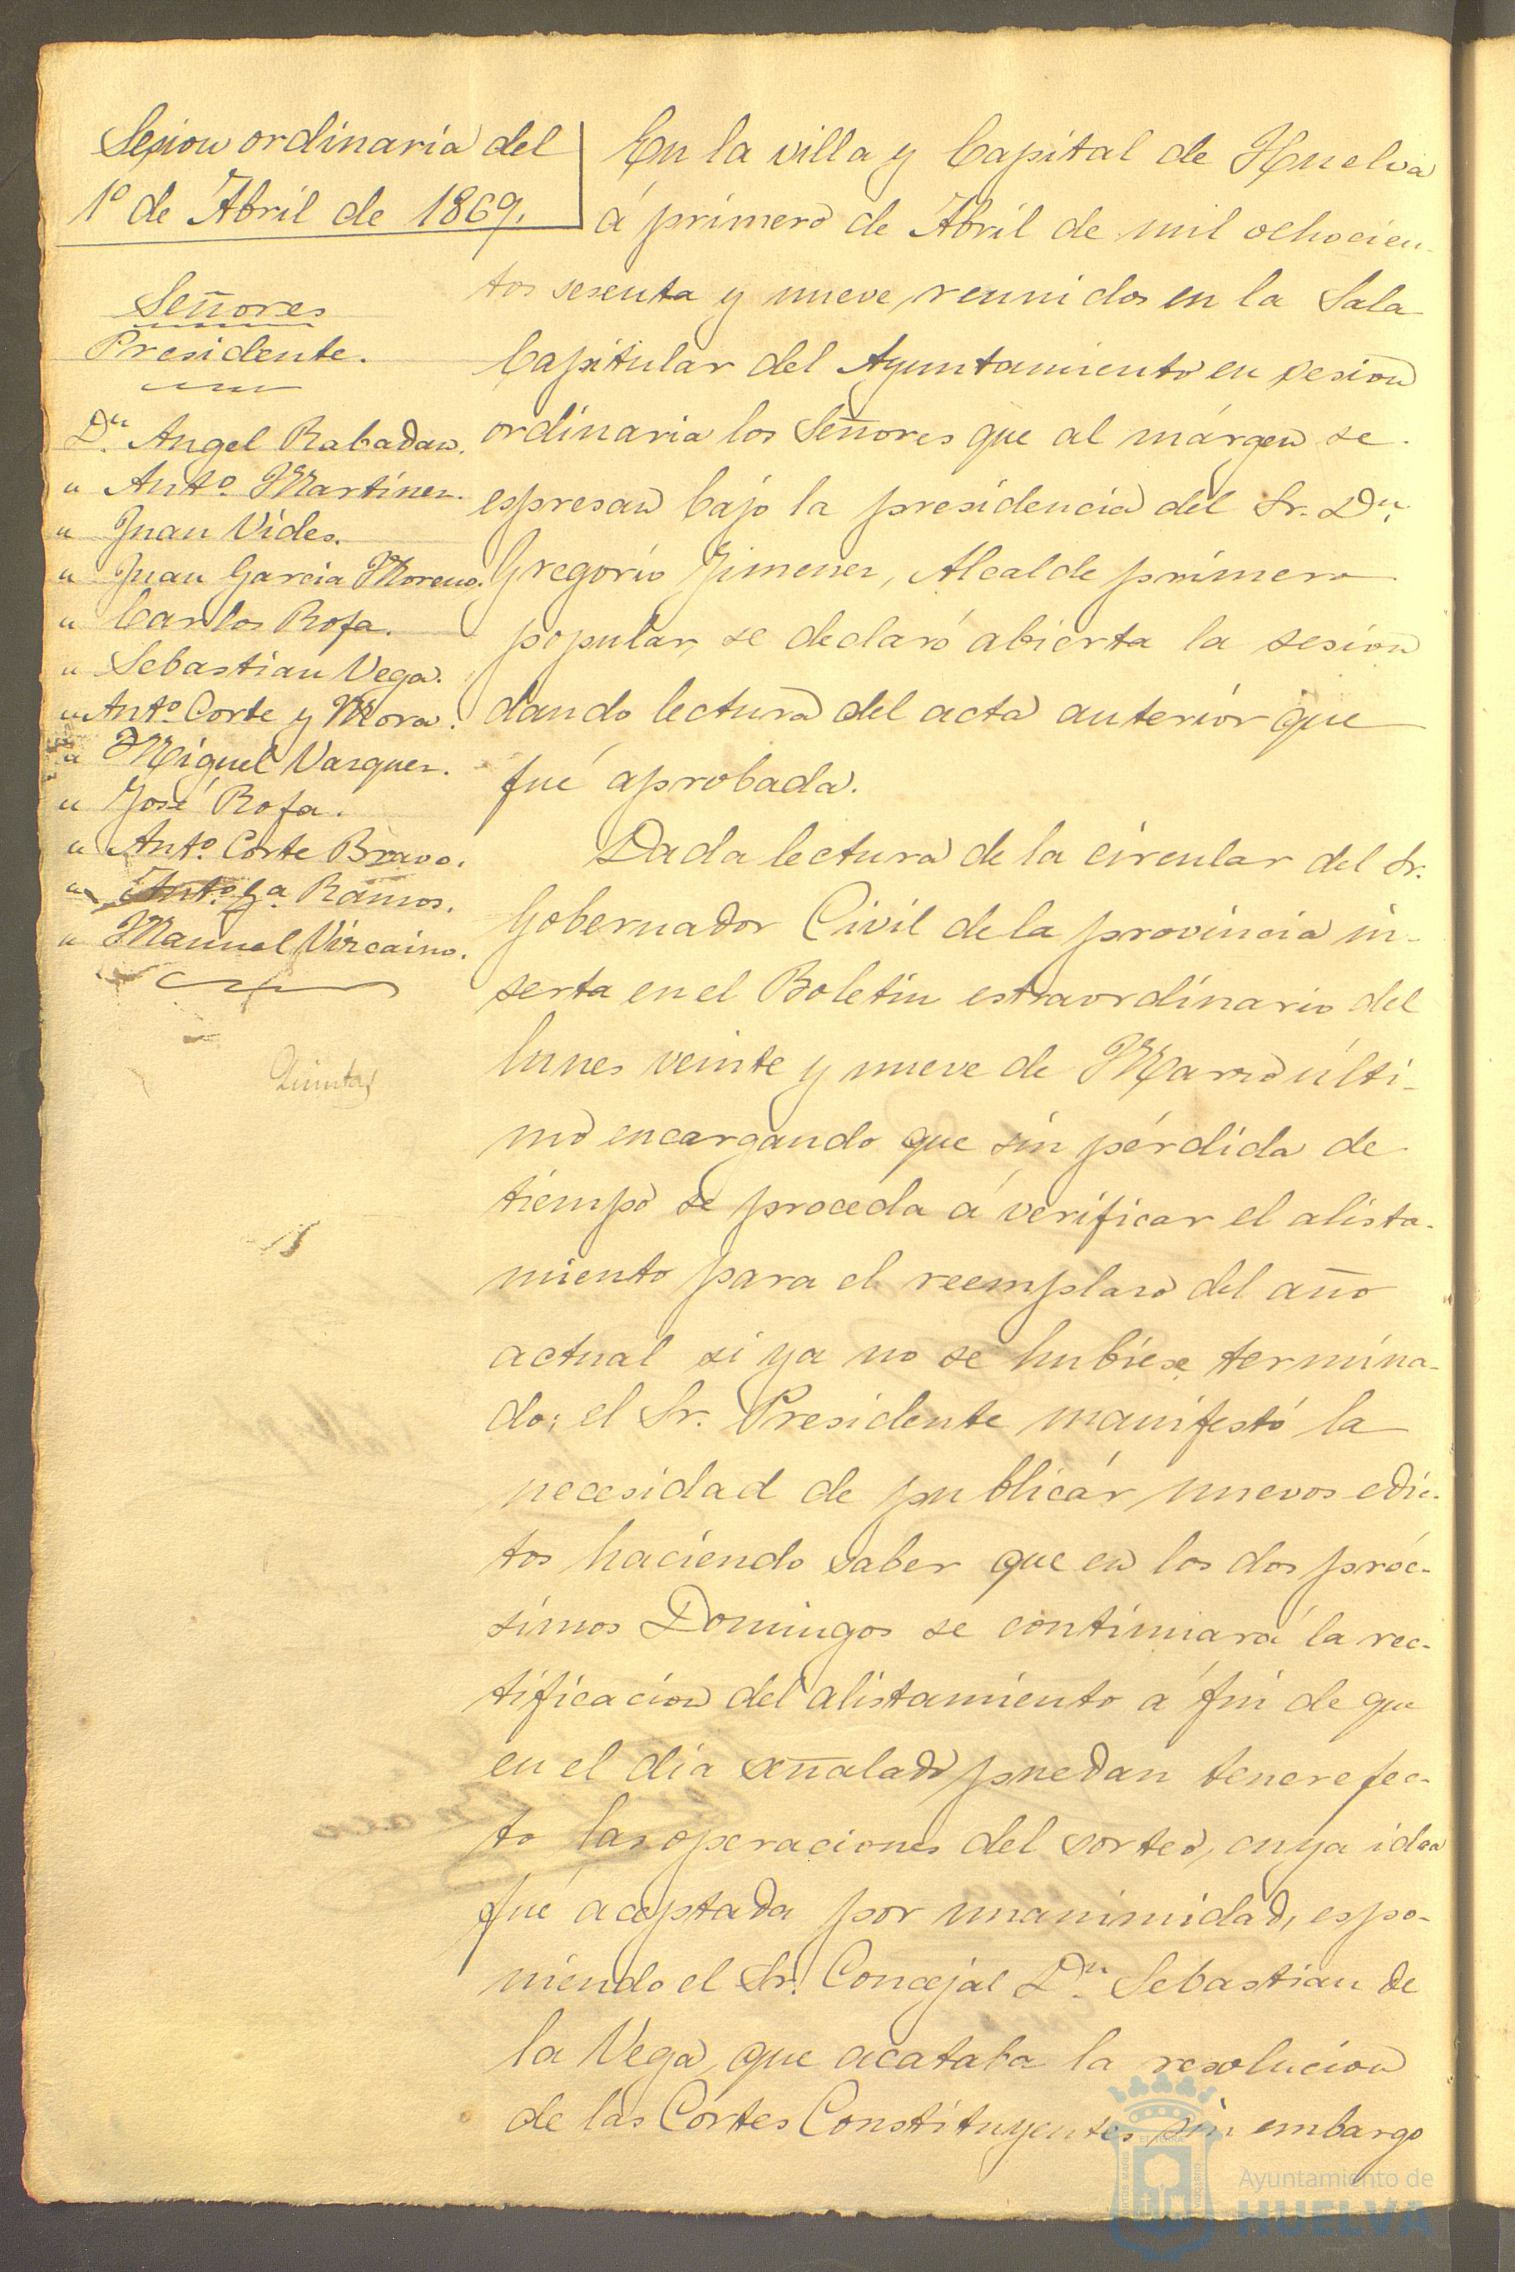 Sesion ordinaria del
1º de Abril de 1869.
Señores
Presidente.
Dn. Angel Rabadan.
" Antº. Martinez.
" Juan Vides.
" Juan Garcia Moreno.
" Carlos Rofa.
" Sebastian Vega.
" Antº. Corte y Mora.
" Miguel Vazquez.
" José Rofa.
" Antº. Corte Bravo.
" Antº. Gª. Ramos.
" Manuel Vizcaino.
Quintas
En la villa y Capital de Huelva
á primero de Abril de mil ochocien-
tos sesenta y nueve, reunidos en la Sala
Capitular del Ayuntamiento en sesion
ordinaria los Señores que al márgen se
espresan bajo la presidencia del Sr. Dn.
Gregorio Jimenez, Alcalde primero
popular, se declaró abierta la sesion
dando lectura del acta anterior que
fué aprobada.
Dada lectura de la circular del Sr.
Gobernador Civil de la provincia in-
serta en el Boletin estraordinario del
lunes veinte y nueve de Marzo últi-
mo encargando que sin pérdida de
tiempo se proceda á verificar el alista-
miento para el reemplazo del año
actual si ya no se hubiese termina-
do; el Sr. Presidente manifestó la
necesidad de publicár nuevos edic-
tos haciendo saber que en los dos próc-
simos Domingos se continuará la rec-
tificacion del alistamiento á fin de que
en el dia señalado puedan tener efec-
to las operaciones del sorteo, cuya idea
fué aceptada por unanimidad, espo-
niendo el Sr. Concejal Dn. Sebastian de
la Vega, que acataba la resolucion
de las Cortes Constituyentes sin embargo
Ayuntamiento de
HUELVA